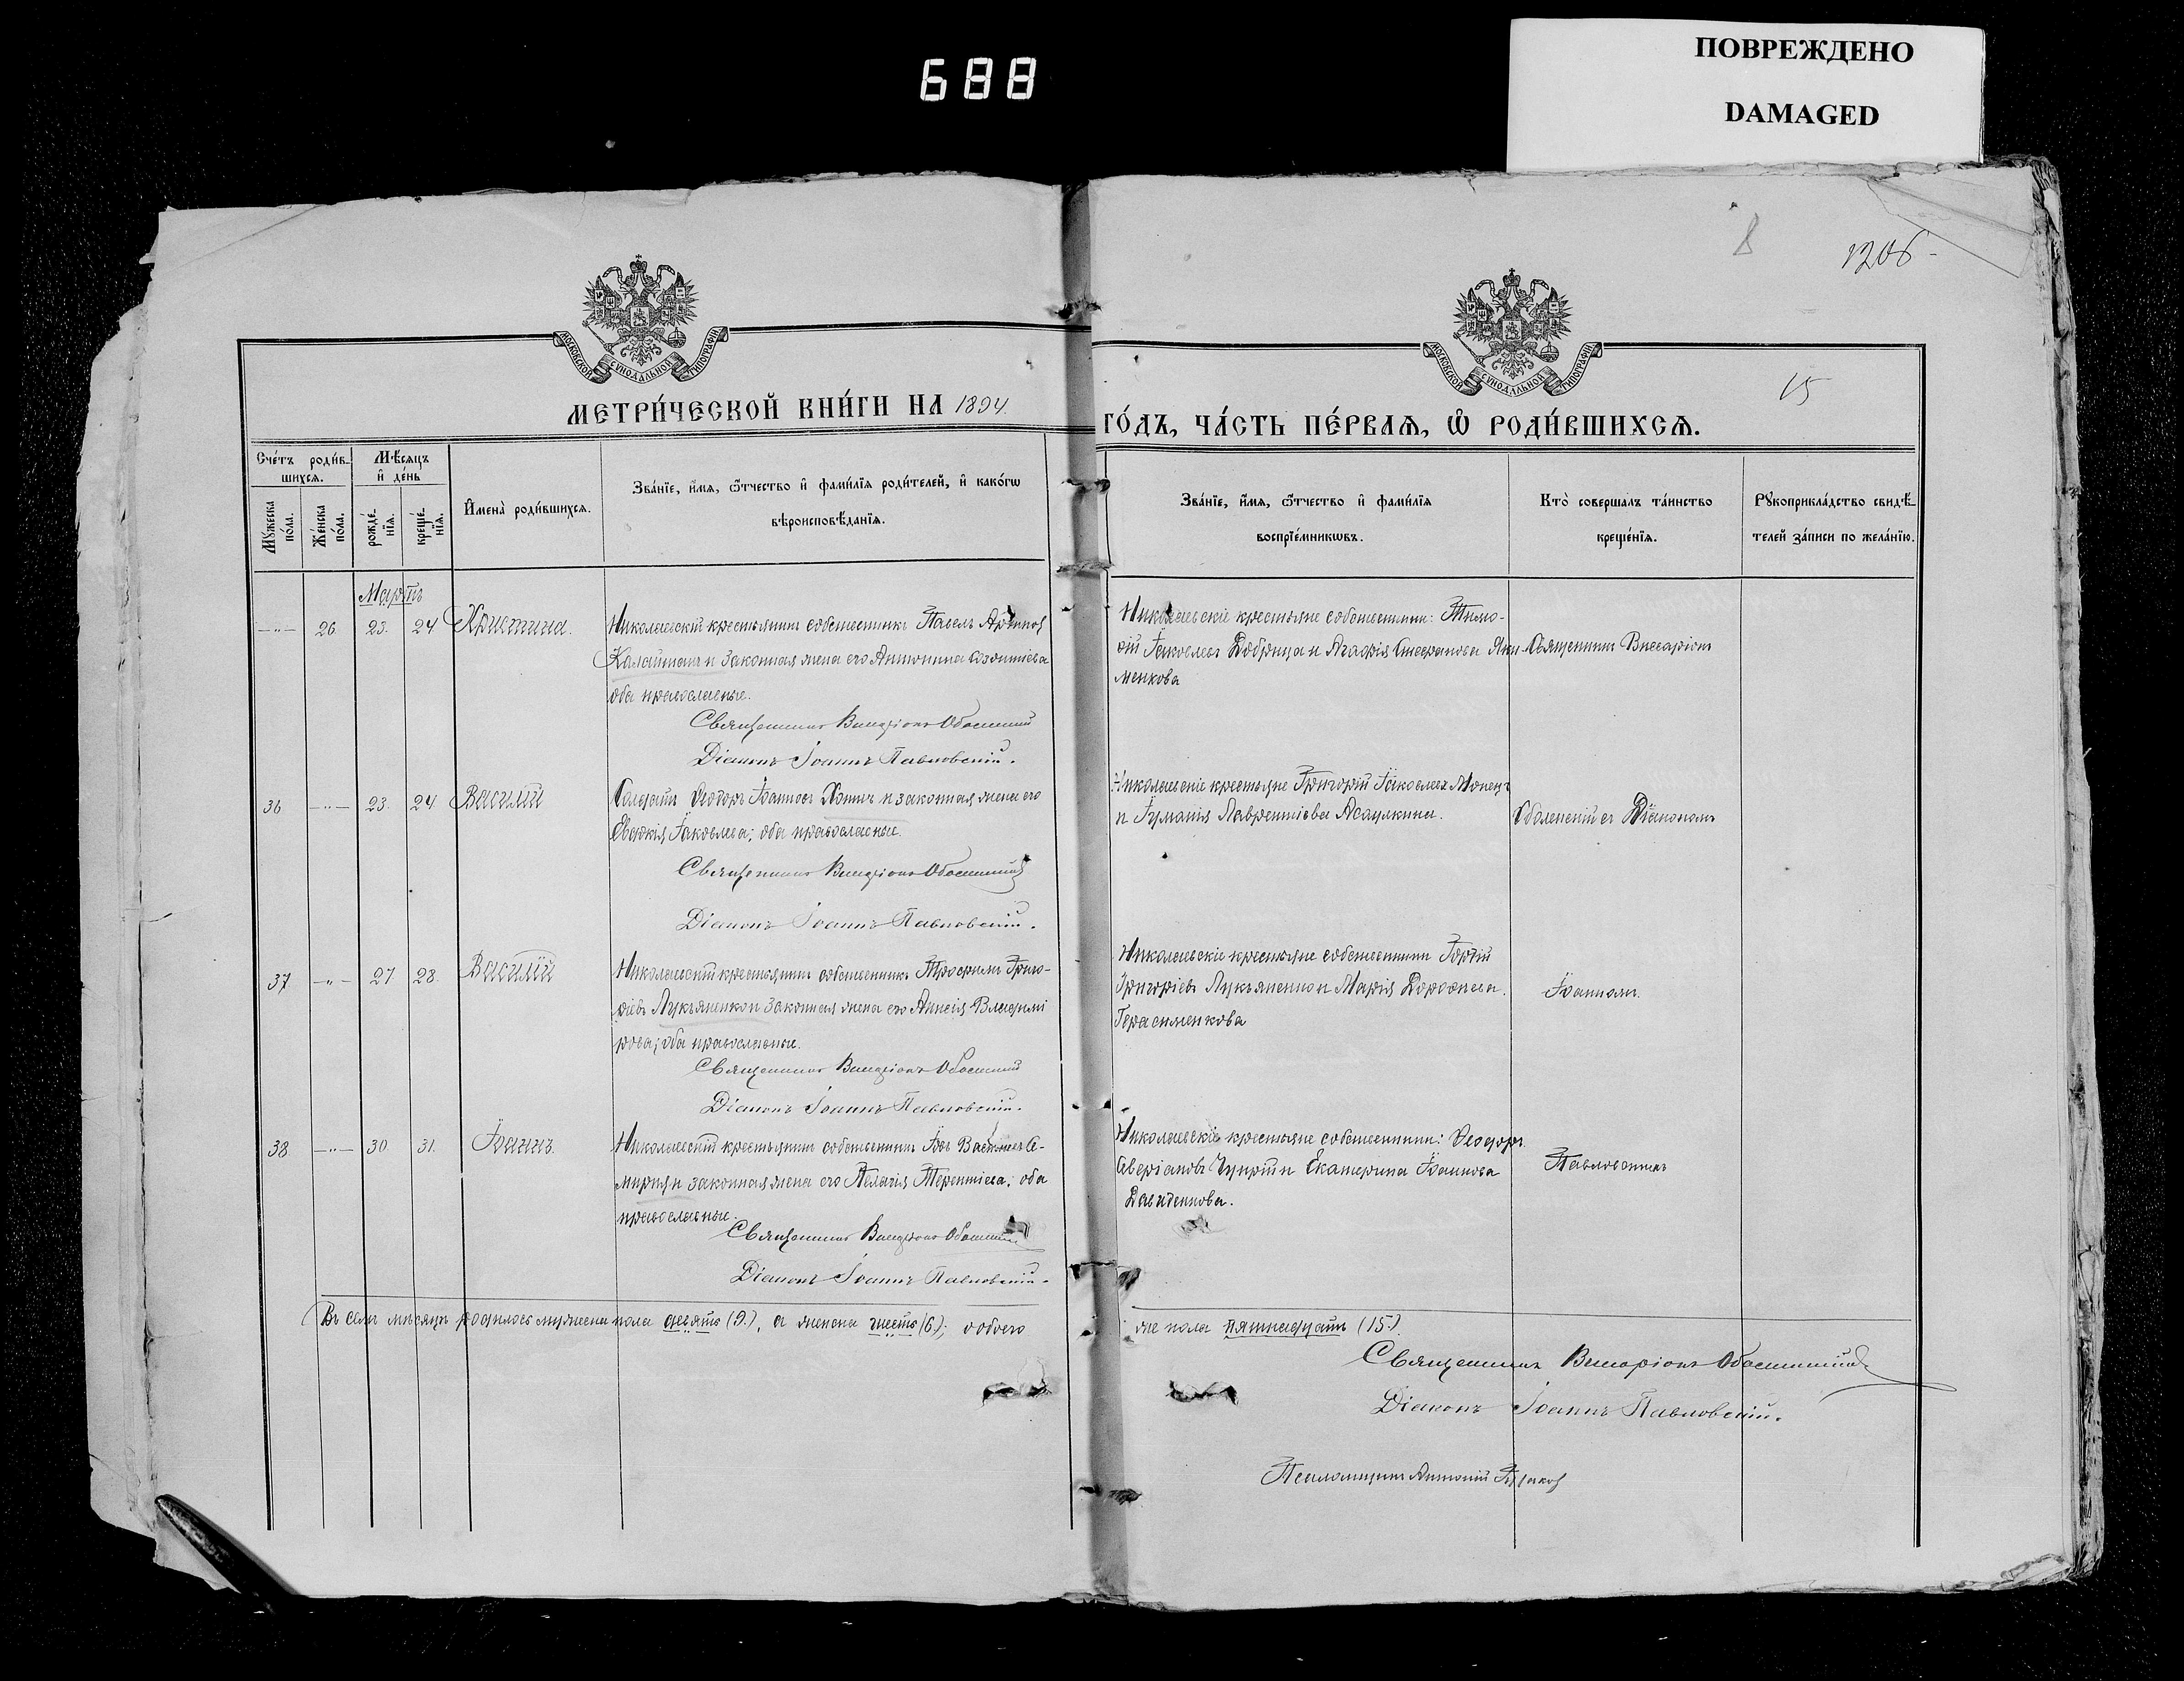 688
ПОВРЕЖДЕНО
DAMAGED
8
1206
15
МОСКОВСКОЙ СѴНОДАЛЬНОЙ ТИПОГРАФІИ
МОСКОВСКОЙ СѴНОДАЛЬНОЙ ТИПОГРАФІИ
МЕТРИ́ЧЕСКОЙ КНИ́ГИ НА 1894
ГО́ДЪ, ЧА́СТЬ ПЕ́РВАѦ, Ѡ҆ РОДИ́ВШИХСѦ.
Сче́тъ роди́вшихсѧ.
Мꙋ́жеска по́ла.
Же́нска по́ла.
Мѣ́сѧцъ и҆ де́нь
рожде́нїѧ.
креще́нїѧ.
И҆мена̀ роди́вшихсѧ.
Зва́нїе, и҆́мѧ, ѻ҆́тчество и҆ фами́лїѧ роди́телей, и҆ како́гѡ
вѣроисповѣ́данїѧ.
Зва́нїе, и҆́мѧ, ѻ҆́тчество и҆ фами́лїѧ
воспрїе́мникѡвъ.
Кто̀ соверша́лъ та́инство
креще́нїѧ.
Рꙋкоприкла́дство свидѣ́телей за́писи по жела́нїю.
Мартъ
-"- 26 23. 24 Христина.
Николаевскій крестьянинъ собственникъ Павелъ
и законная жена его Антонина
оба православные.
Священникъ Виссаріонъ Оболенскій
Діаконъ Іоаннъ Павловскій.
Николаевскіе крестьяне собственники: Тимо-
ѳій Іаковлевъ Добрица и Агафія Стефанова Яки-
менкова
Священникъ Виссаріонъ
36 -"- 23. 24. Василій
Солдатъ Ѳеодоръ Іоанновъ и законная жена его
Евдокія Іаковлева; оба православные.
Священникъ Виссаріонъ Оболенскій
Діаконъ Іоаннъ Павловскій.
Николаевскіе крестьяне Григорій Іаковлевъ
и Лаврентіева
Оболенскій съ Діакономъ
37 -"- 27 28. Василій
Николаевскій крестьянинъ собственникъ Трофимъ Григо-
ріевъ Лукьяненко и законная жена его Анисія Владимі
рова; оба православные.
Священникъ Виссаріонъ Оболенскій
Діаконъ Іоаннъ Павловскій.
Николаевскіе крестьяне собственники
Григоріевъ Лукьяненко и Марія Дороѳеева
Герасименкова
Іоанномъ
38 -"- 30 31. Іоаннъ.
Николаевскій крестьянинъ собственникъ Іовъ Васильевъ
и законная жена его Пелагія Терентіева; оба
православные.
Священникъ Виссаріонъ Оболенскій
Діаконъ Іоаннъ Павловскій.
Николаевскіе крестьяне собственники: Ѳеодоръ
Северіановъ и Екатерина Іоаннова
Давиденкова.
Павловскимъ
Въ семъ мѣсяцѣ родилось мужеска пола девять (9.), а женска шесть (6.); обоего
же пола пятнадцать (15.)
Священникъ Виссаріонъ Оболенскій
Діаконъ Іоаннъ Павловскій.
Псаломщикъ Антоній